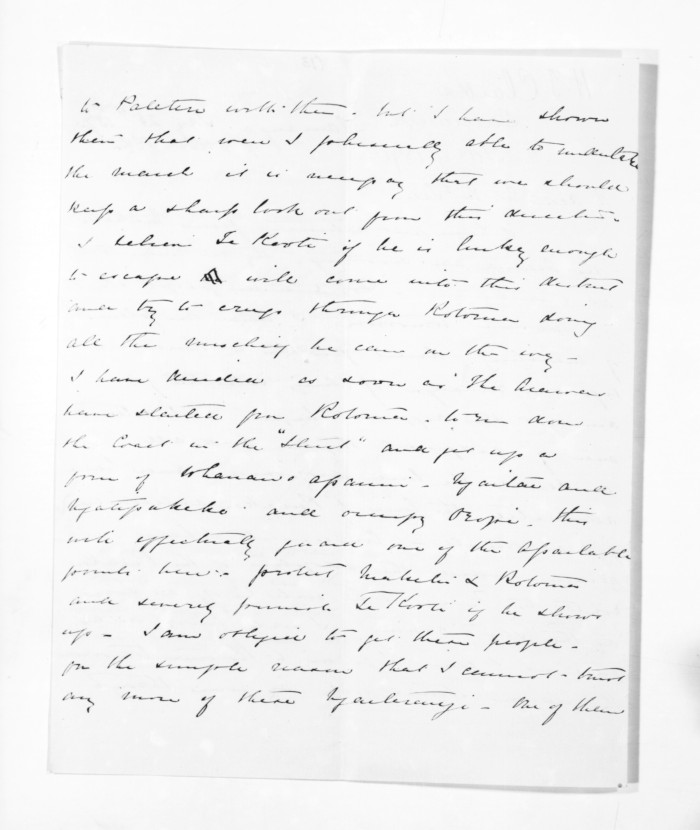 to Patetere with them. but I have shown
them that were I physically able to undertake
the march it is necessary that we should
keep a sharp look out from this direction
I believe Te Kooti if he is lucky enough
to escape will come into this district
and try to creep through Rotorua doing
all the mischief he can on the way -
I have decided as soon as the Arawas
have started from Rotorua. to run down
the Coast in the "Sturt" and get up a
force of Whanau apanui - Ngaitai and
Ngatipukeko and occupy this
will effectually guard one of the assailable
points here - protect Maketu & Rotorua
and severely punish Te Kooti if he shows
up - I am obliged to get these people -
for the simple reason that I cannot trust
any more of these - One of them